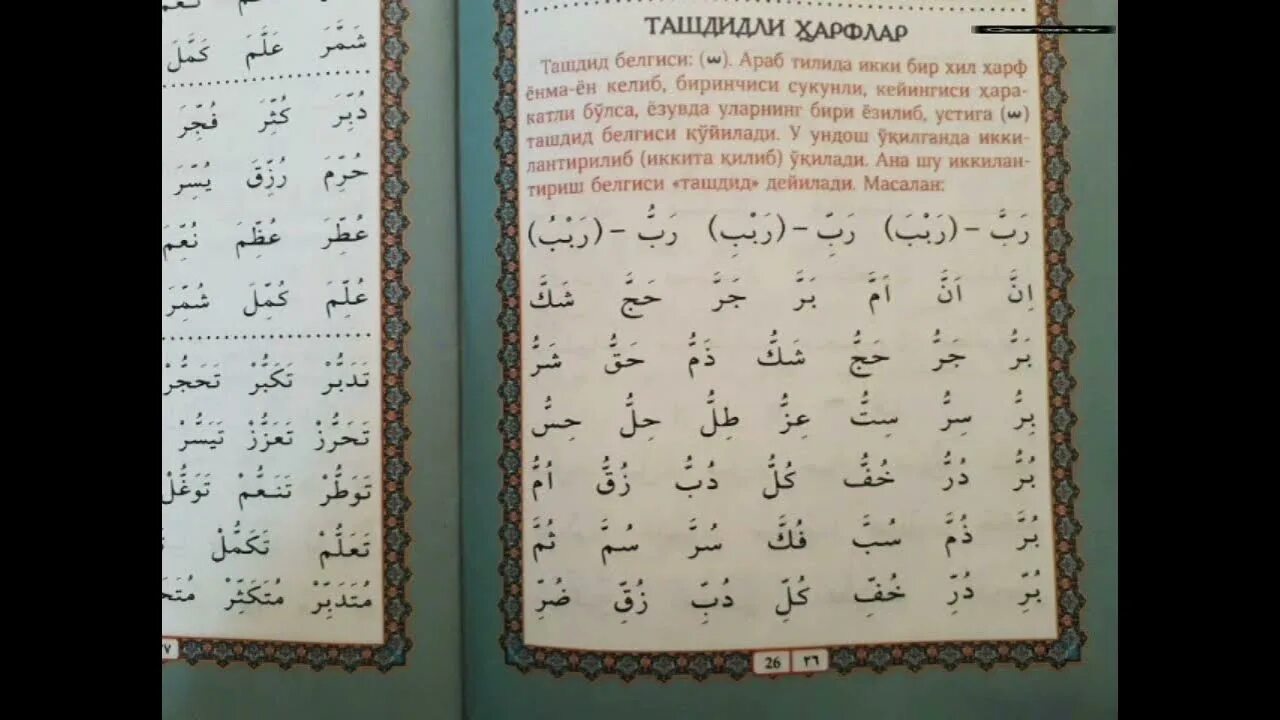 شَمَّرَ عَلَّمَ كَمَّلَ
دُبِّرَ كُثِّرَ فُجِّرَ
حُرِّمَ رُزِّقَ يُسِّرَ
عُطِّرَ عُظِّمَ نُعِّمَ
عُلِّمَ كُمِّلَ شُمِّرَ
تَدَبُّرْ تَكَبُّرْ تَحَجُّرْ
تَحَرُّزْ تَعَزُّزْ تَيَسُّرْ
تَوَطُّرْ تَنَعُّمْ تَوَغُّلْ
تَعَلُّمْ تَكَمُّلْ
مُتَدَبِّرْ مُتَكَثِّرْ
ТАШДИДЛИ ҲАРФЛАР
Ташдид белгиси: (ــّـ). Араб тилида икки бир хил ҳарф
ёнма-ён келиб, биринчиси сукунли, кейингиси ҳара-
катли бўлса, ёзувда уларнинг бири ёзилиб, устига (ــّـ)
ташдид белгиси қўйилади. У ундош ўқилганда икки-
лантирилиб (иккита қилиб) ўқилади. Ана шу иккилан-
тириш белгиси «ташдид» дейилади. Масалан:
رَبَّ – (رَبْبَ) رَبِّ – (رَبْبِ) رَبُّ – (رَبْبُ)
اِنَّ اَنَّ اَمَّ بَرَّ جَرَّ حَجَّ شَكَّ
بَرُّ جَرُّ حَجُّ شَكُّ ذَمُّ حَقُّ شَرُّ
بِرُّ سِرُّ سِتُّ عِزُّ طِلُّ حِلُّ حِسُّ
بُرُّ دُرُّ خُفُّ كُلُّ دُبُّ زُقُّ اُمُّ
بُرَّ ذُمَّ سُبَّ فُكَّ سُرَّ سُمَّ ثُمَّ
بُرِّ دُرِّ خُفِّ كُلِّ دُبِّ زُقِّ ضُرِّ
26 ٢٦